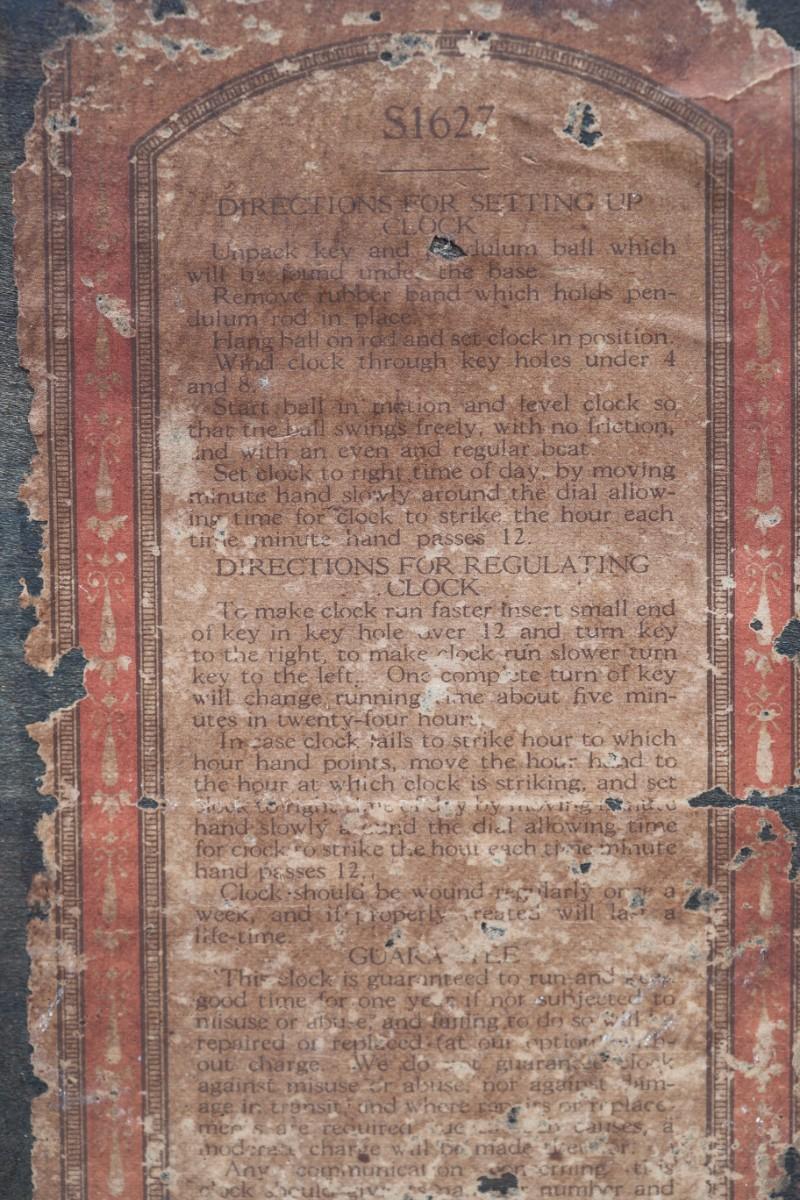 S1627
DIRECTIONS FOR SETTING UP
CLOCK
Unpack key and pendulum ball which
will be found under the base.
Remove rubber band which holds pen-
dulum rod in place.
Hang ball on rod and set clock in position.
Wind clock through key holes under 4
and 8.
Start ball in motion and level clock so
that the ball swings freely, with no friction,
and with an even and regular beat.
Set clock to right time of day, by moving
minute hand slowly around the dial allow-
ing time for clock to strike the hour each
time minute hand passes 12.
DIRECTIONS FOR REGULATING
CLOCK
To make clock run faster insert small end
of key in key hole over 12 and turn key
to the right, to make clock run slower turn
key to the left. One complete turn of key
will change running time about five min-
utes in twenty-four hours.
In case clock fails to strike hour to which
hour hand points, move the hour hand to
the hour at which clock is striking, and set
clock to right time of day by moving minute
hand slowly around the dial allowing time
for clock to strike the hour each time minute
hand passes 12.
Clock should be wound regularly once a
week, and if properly treated will last a
life-time.
GUARANTEE
This clock is guaranteed to run and keep
good time for one year if not subjected to
misuse or abuse, and failing to do so will be
repaired or replaced (at our option) with-
out charge. We do not guarantee clock
against misuse or abuse, nor against dam-
age in transit and where repairs or replace-
ments are required causes, a
moderate charge will be made
Any communication concerning this
clock should give number and